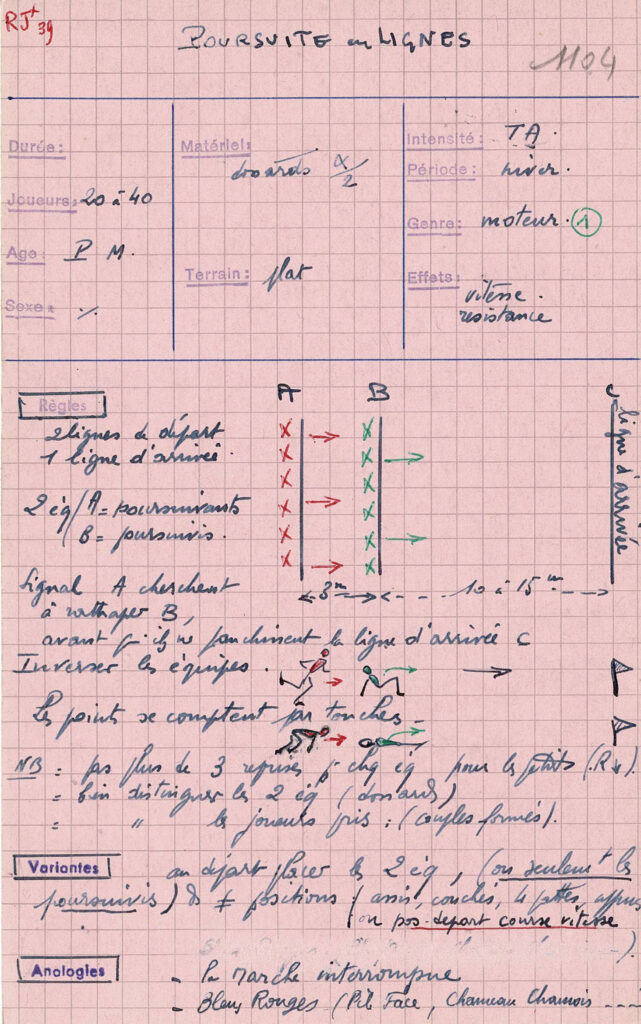 RJ+ 39
POURSUITE en LIGNES
1104
Durée:
Joueurs: 20 à 40
Age: P M.
Sexe: ·/.
Matériel:
dossards α/2
Terrain: plat
Intensité: TA
Période: hiver.
Genre: moteur. 1
Effets:
vitesse.
resistance
Règles
A B C
2 lignes de départ
1 ligne d'arrivée.
2 éq / A = poursuivants
B = poursuivis.
ligne d'arrivée
3m 10 à 15m
Signal A cherchent
à rattraper B,
avant qu'ils ne franchissent la ligne d'arrivée C
Inverser les équipes.
Les points se comptent par touches -
NB = pas plus de 3 reprises p chq éq pour les petits (R↓).
= bien distinguer les 2 éq (dossards)
= " les joueurs pris : (couples formés).
Variantes
au départ placer les 2 éq, (ou seulemt les
poursuivis) ds ≠ positions (assis, couchés, 4 pattes, appuis
ou pos. depart course vitesse
Analogies
- La marche interrompue
- Bleus Rouges (Pile Face, Chameau Chamois ----